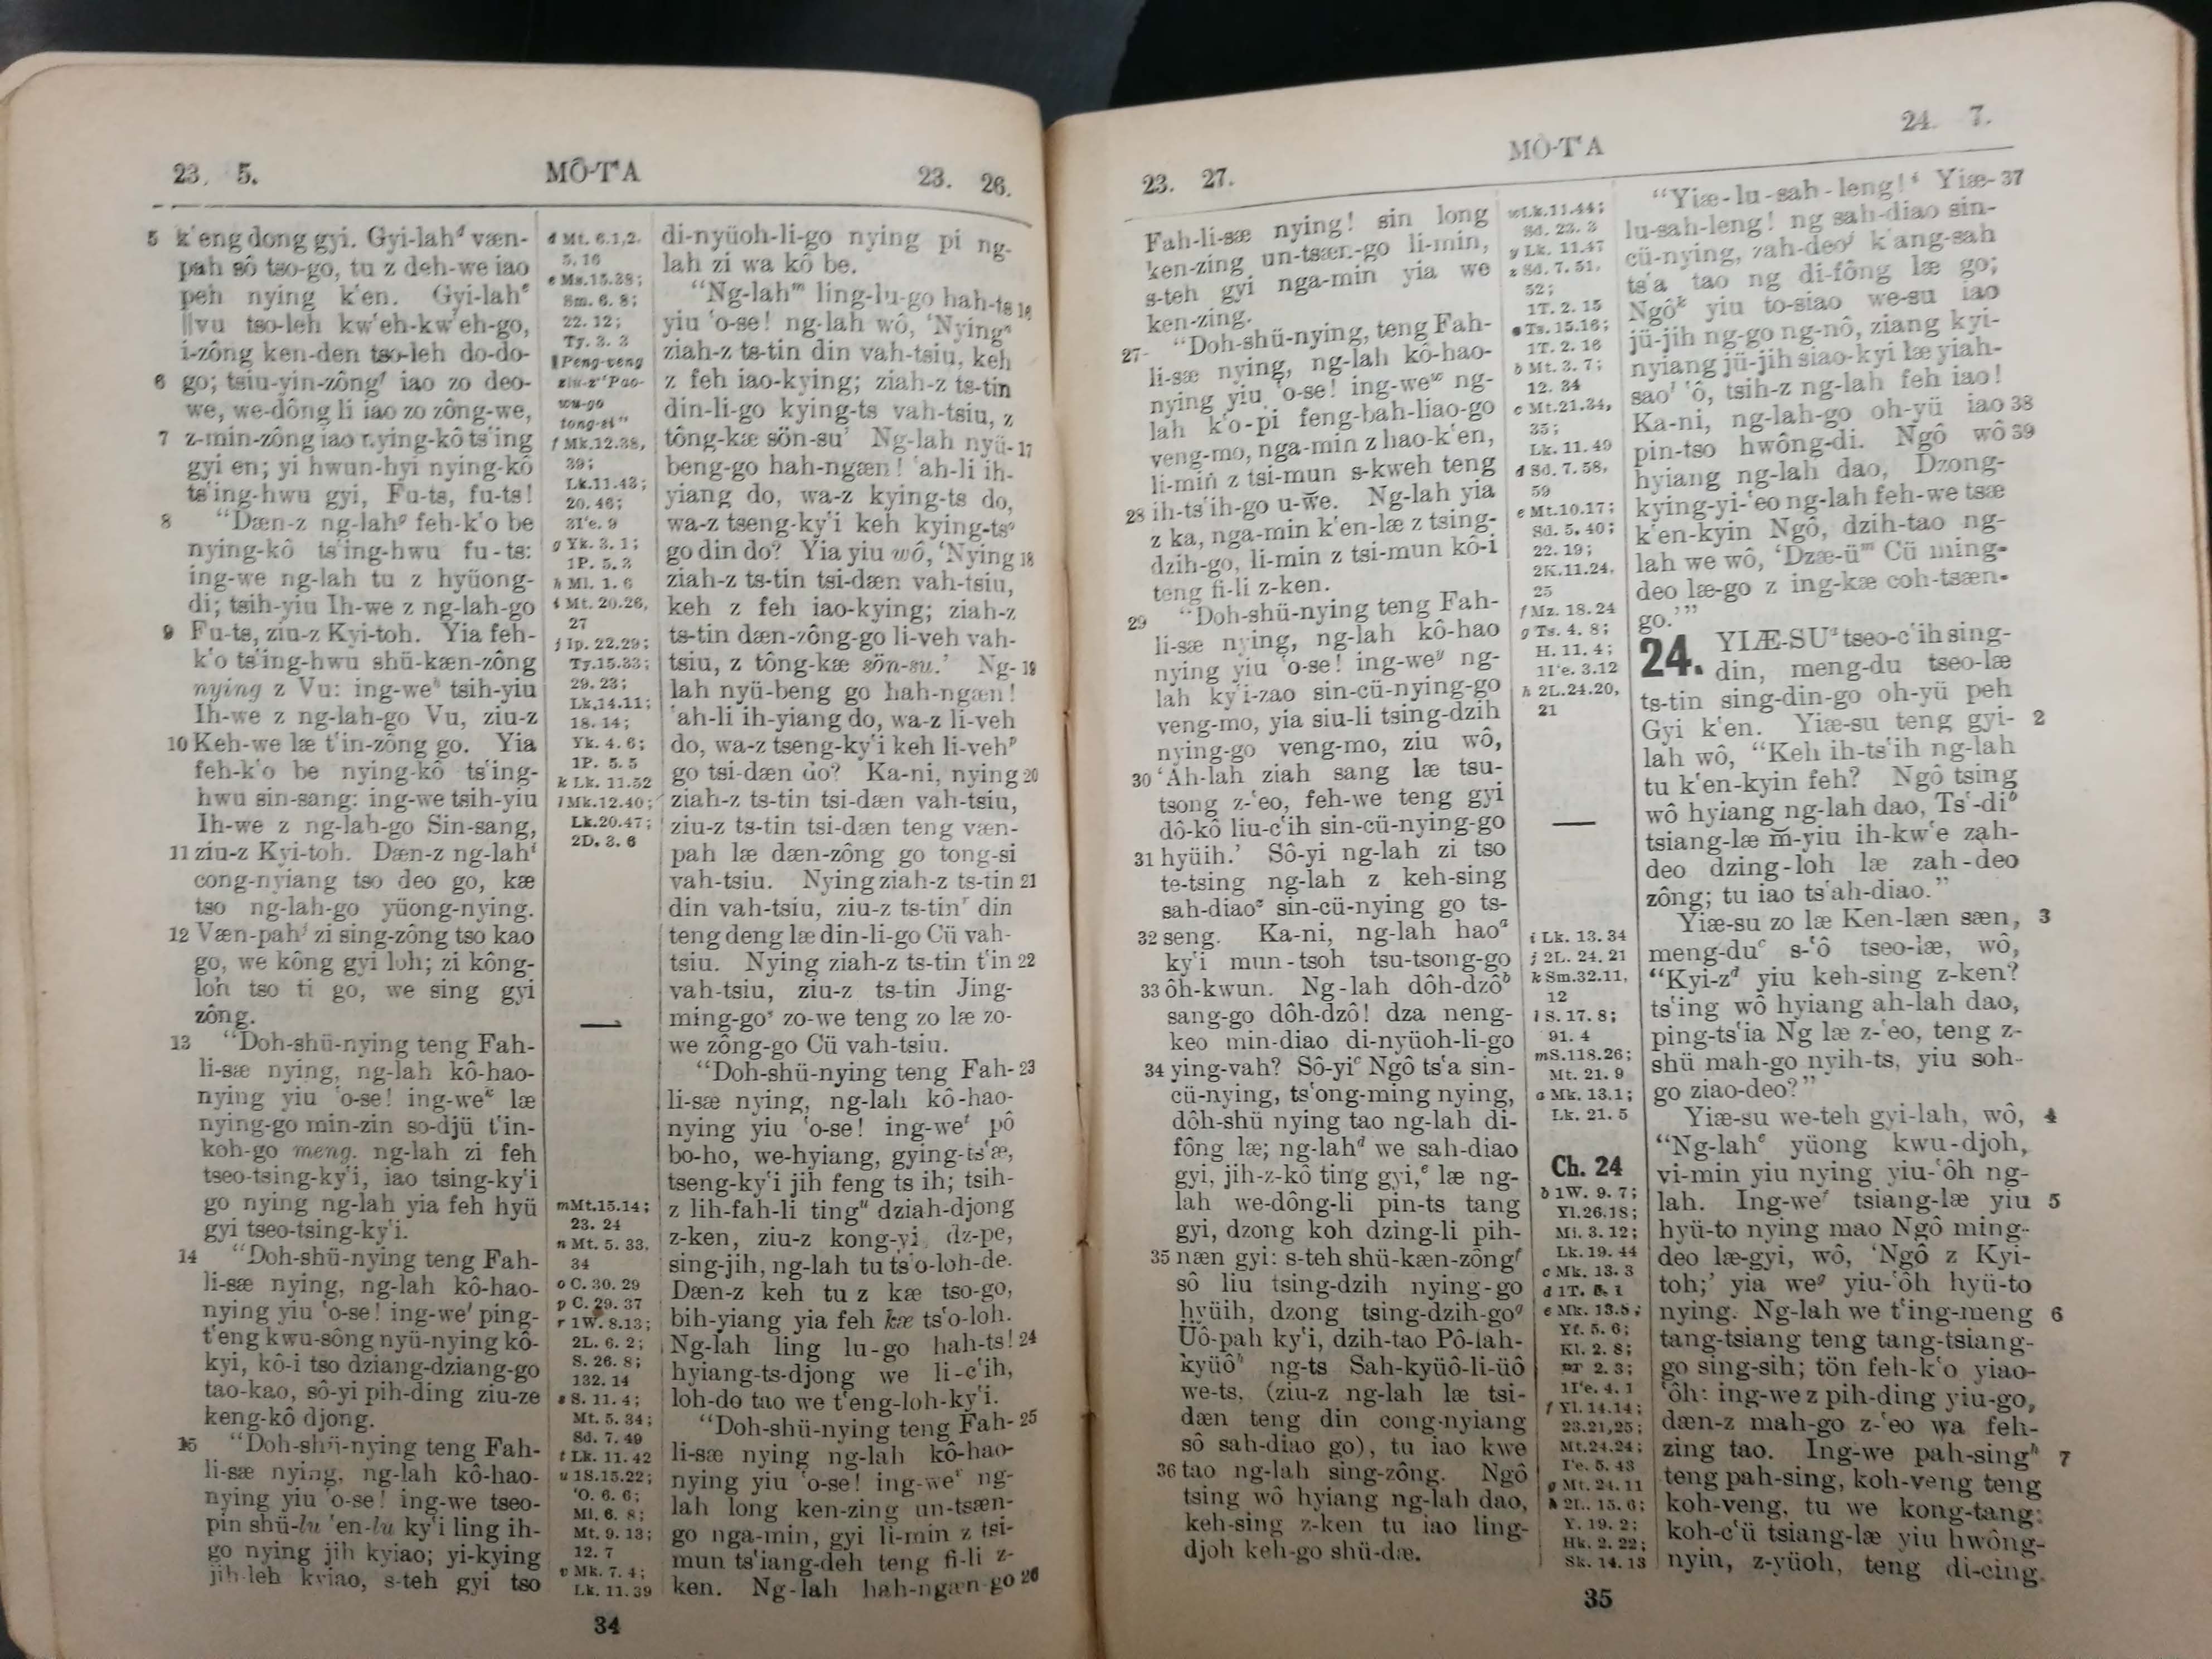 23. 5.
MÔ-T‘A
23. 26.
5 k‘eng dong gyi. Gyi-lahᵈ væn-
pah sô tso-go, tu z deh-we iao
peh nying k‘en. Gyi-lahᵉ
‖vu tso-leh kw‘eh-kw‘eh-go,
i-zông ken-den tso-leh do-do-
6 go; tsiu-yin-zôngᶠ iao zo deo-
we, we-dông li iao zo zông-we,
7 z-min-zông iao nying-kô ts‘ing
gyi en; yi hwun-hyi nying-kô
ts‘ing-hwu gyi, Fu-ts, fu-ts!
8 “Dæn-z ng-lahᵍ feh-k‘o be
nying-kô ts‘ing-hwu fu-ts:
ing-we ng-lah tu z hyüong-
di; tsih-yiu Ih-we z ng-lah-go
9 Fu-ts, ziu-z Kyi-toh. Yia feh-
k‘o ts‘ing-hwu shü-kæn-zông
nying z Vu: ing-weʰ tsih-yiu
Ih-we z ng-lah-go Vu, ziu-z
10 Keh-we læ t‘in-zông go. Yia
feh-k‘o be nying-kô ts‘ing-
hwu sin-sang: ing-we tsih-yiu
Ih-we z ng-lah-go Sin-sang,
11 ziu-z Kyi-toh. Dæn-z ng-lahⁱ
cong-nyiang tso deo go, kæ
tso ng-lah-go yüong-nying.
12 Væn-pahʲ zi sing-zông tso kao
go, we kông gyi loh; zi kông-
loh tso ti go, we sing gyi
zông.
13 “Doh-shü-nying teng Fah-
li-sæ nying, ng-lah kô-hao-
nying yiu ‘o-se! ing-weᵏ læ
nying-go min-zin so-djü t‘in-
koh-go meng. ng-lah zi feh
tseo-tsing-ky‘i, iao tsing-ky‘i
go nying ng-lah yia feh hyü
gyi tseo-tsing-ky‘i.
14 “Doh-shü-nying teng Fah-
li-sæ nying, ng-lah kô-hao-
nying yiu ‘o-se! ing-weˡ ping-
t‘eng kwu-sông nyü-nying kô-
kyi, kô-i tso dziang-dziang-go
tao-kao, sô-yi pih-ding ziu-ze
keng-kô djong.
15 “Doh-shü-nying teng Fah-
li-sæ nying, ng-lah kô-hao-
nying yiu ‘o-se! ing-we tseo-
pin shü-lu ‘en-lu ky‘i ling ih-
go nying jih kyiao; yi-kying
jih-leh kyiao, s-teh gyi tso
d Mt. 6.1,2.
5, 16
e Ms.15.38;
Sm. 6. 8;
22. 12;
Ty. 3. 3
‖Peng-veng
ziu-z “Pao-
wu-go
tong-si”
f Mk.12.38,
39;
Lk.11.43;
20. 46;
3I‘e. 9
g Yk. 3. 1;
1P. 5. 3
h Ml. 1. 6
i Mt. 20.26,
27
j Ip. 22.29;
Ty.15.33;
29. 23;
Lk,14.11;
18. 14;
Yk. 4. 6;
1P. 5. 5
k Lk. 11.52
l Mk.12.40;
Lk.20.47;
2D. 3. 6
mMt.15.14;
23. 24
n Mt. 5. 33,
34
o C. 30. 29
p C. 29. 37
r 1W. 8.13;
2L. 6. 2;
S. 26. 8;
132. 14
s S. 11. 4;
Mt. 5. 34;
Sd. 7. 49
t Lk. 11. 42
u 1S.15.22;
‘O. 6. 6;
Ml. 6. 8;
Mt. 9. 13;
12. 7
v Mk. 7. 4;
Lk. 11. 39
di-nyüoh-li-go nying pi ng-
lah zi wa kô be.
“Ng-lahᵐ ling-lu-go hah-ts 16
yiu ‘o-se! ng-lah wô, ‘Nyingⁿ
ziah-z ts-tin din vah-tsiu, keh
z feh iao-kying; ziah-z ts-tin
din-li-go kying-ts vah-tsiu, z
tông-kæ sön-su’ Ng-lah nyü- 17
beng-go hah-ngæn! ‘ah-li ih-
yiang do, wa-z kying-ts do,
wa-z tseng-ky‘i keh kying-tsᵒ
go din do? Yia yiu wô, ‘Nying 18
ziah-z ts-tin tsi-dæn vah-tsiu,
keh z feh iao-kying; ziah-z
ts-tin dæn-zông-go li-veh vah-
tsiu, z tông-kæ sön-su.’ Ng- 19
lah nyü-beng go hah-ngæn!
‘ah-li ih-yiang do, wa-z li-veh
do, wa-z tseng-ky‘i keh li-vehᵖ
go tsi-dæn do? Ka-ni, nying 20
ziah-z ts-tin tsi-dæn vah-tsiu,
ziu-z ts-tin tsi-dæn teng væn-
pah læ dæn-zông go tong-si
vah-tsiu. Nying ziah-z ts-tin 21
din vah-tsiu, ziu-z ts-tinʳ din
teng deng læ din-li-go Cü vah-
tsiu. Nying ziah-z ts-tin t‘in 22
vah-tsiu, ziu-z ts-tin Jing-
ming-goˢ zo-we teng zo læ zo-
we zông-go Cü vah-tsiu.
“Doh-shü-nying teng Fah- 23
li-sæ nying, ng-lah kô-hao-
nying yiu ‘o-se! ing-weᵗ pô
bo-ho, we-hyiang, gying-ts‘æ,
tseng-ky‘i jih feng ts ih; tsih-
z lih-fah-li tingᵘ dziah-djong
z-ken, ziu-z kong-yi, dz-pe,
sing-jih, ng-lah tu ts‘o-loh-de.
Dæn-z keh tu z kæ tso-go,
bih-yiang yia feh kæ ts‘o-loh.
Ng-lah ling lu-go hah-ts! 24
hyiang-ts-djong we li-c‘ih,
loh-do tao we t‘eng-loh-ky‘i.
“Doh-shü-nying teng Fah- 25
li-sæ nying ng-lah kô-hao-
nying yiu ‘o-se! ing-weᵛ ng-
lah long ken-zing un-tsæn-
go nga-min, gyi li-min z tsi-
mun ts‘iang-deh teng fi-li z-
ken. Ng-lah hah-ngæn-go 26
34
23. 27.
MÔ-T‘A
24. 7.
Fah-li-sæ nying! sin long
ken-zing un-tsæn-go li-min,
s-teh gyi nga-min yia we
ken-zing.
27 “Doh-shü-nying, teng Fah-
li-sæ nying, ng-lah kô-hao-
nying yiu ‘o-se! ing-weʷ ng-
lah k‘o-pi feng-bah-liao-go
veng-mo, nga-min z hao-k‘en,
li-min z tsi-mun s-kweh teng
28 ih-ts‘ih-go u-we. Ng-lah yia
z ka, nga-min k‘en-læ z tsing-
dzih-go, li-min z tsi-mun kô-i
teng fi-li z-ken.
29 “Doh-shü-nying teng Fah-
li-sæ nying, ng-lah kô-hao
nying yiu ‘o-se! ing-weʸ ng-
lah ky‘i-zao sin-cü-nying-go
veng-mo, yia siu-li tsing-dzih
nying-go veng-mo, ziu wô,
30 ‘Ah-lah ziah sang læ tsu-
tsong z-‘eo, feh-we teng gyi
dô-kô liu-c‘ih sin-cü-nying-go
31 hyüih.’ Sô-yi ng-lah zi tso
te-tsing ng-lah z keh-sing
sah-diaoᶻ sin-cü-nying go ts-
32 seng. Ka-ni, ng-lah haoᵃ
ky‘i mun-tsoh tsu-tsong-go
33 ôh-kwun. Ng-lah dôh-dzôᵇ
sang-go dôh-dzô! dza neng-
keo min-diao di-nyüoh-li-go
34 ying-vah? Sô-yiᶜ Ngô ts‘a sin-
cü-nying, ts‘ong-ming nying,
dôh-shü nying tao ng-lah di-
fông læ; ng-lahᵈ we sah-diao
gyi, jih-z-kô ting gyi,ᵉ læ ng-
lah we-dông-li pin-ts tang
gyi, dzong koh dzing-li pih-
35 næn gyi: s-teh shü-kæn-zôngᶠ
sô liu tsing-dzih nying-go
hyüih, dzong tsing-dzih-goᵍ
Üô-pah ky‘i, dzih-tao Pô-lah-
kyüôʰ ng-ts Sah-kyüô-li-üô
we-ts, (ziu-z ng-lah læ tsi-
dæn teng din cong-nyiang
sô sah-diao go), tu iao kwe
36 tao ng-lah sing-zông. Ngô
tsing wô hyiang ng-lah dao,
keh-sing z-ken tu iao ling-
djoh keh-go shü-dæ.
wLk.11.44;
Sd. 23. 3
y Lk. 11.47
z Sd. 7. 51,
52;
1T. 2. 15
a Ts. 15.16;
1T. 2. 16
b Mt. 3. 7;
12. 34
c Mt.21.34,
35;
Lk. 11. 49
d Sd. 7. 58,
59
e Mt.10.17;
Sd. 5. 40;
22. 19;
2K.11.24,
25
f Mz. 18. 24
g Ts. 4. 8;
H. 11. 4;
1I‘e. 3.12
h 2L.24.20,
21
i Lk. 13. 34
j 2L. 24. 21
k Sm.32.11,
12
l S. 17. 8;
91. 4
mS.118.26;
Mt. 21. 9
a Mk. 13.1;
Lk. 21. 5
Ch. 24
b 1W. 9. 7;
Yl.26.18;
Mi. 3. 12;
Lk. 19. 44
c Mk. 13. 3
d 1T. 5. 1
e Mk. 13.5;
Yf. 5. 6;
Kl. 2. 8;
2. 3;
1I‘e. 4. 1
f Yl. 14.14;
23.21,25;
Mt.24.24;
I‘e. 5. 43
g Mt. 24. 11
h 2L. 15. 6;
Y. 19. 2;
Hk. 2. 22;
Sk. 14. 13
“Yiæ-lu-sah-leng!ⁱ Yiæ- 37
lu-sah-leng! ng sah-diao sin-
cü-nying, zah-deoʲ k‘ang-sah
ts‘a tao ng di-fông læ go;
Ngôᵏ yiu to-siao we-su iao
jü-jih ng-go ng-nô, ziang kyi-
nyiang jü-jih siao-kyi læ yiah-
saoˡ ‘ô, tsih-z ng-lah feh iao!
Ka-ni, ng-lah-go oh-yü iao 38
pin-tso hwông-di. Ngô wô 39
hyiang ng-lah dao, Dzong-
kying-yi-‘eo ng-lah feh-we tsæ
k‘en-kyin Ngô, dzih-tao ng-
lah we wô, ‘Dzæ-üᵐ Cü ming-
deo læ-go z ing-kæ coh-tsæn-
go.’”
24. YIÆ-SUᵃ tseo-c‘ih sing-
din, meng-du tseo-læ
ts-tin sing-din-go oh-yü peh
Gyi k‘en. Yiæ-su teng gyi- 2
lah wô, “Keh ih-ts‘ih ng-lah
tu k‘en-kyin feh? Ngô tsing
wô hyiang ng-lah dao, Ts‘-diᵇ
tsiang-læ m̆-yiu ih-kw‘e zah-
deo dzing-loh læ zah-deo
zông; tu iao ts‘ah-diao.”
Yiæ-su zo læ Ken-læn sæn, 3
meng-duᶜ s-‘ô tseo-læ, wô,
“Kyi-zᵈ yiu keh-sing z-ken?
ts‘ing wô hyiang ah-lah dao,
ping-ts‘ia Ng læ z-‘eo, teng z-
shü mah-go nyih-ts, yiu soh-
go ziao-deo?”
Yiæ-su we-teh gyi-lah, wô, 4
“Ng-lahᵉ yüong kwu-djoh,
vi-min yiu nying yiu-‘ôh ng-
lah. Ing-weᶠ tsiang-læ yiu 5
hyü-to nying mao Ngô ming-
deo læ-gyi, wô, ‘Ngô z Kyi-
toh;’ yia weᵍ yiu-‘ôh hyü-to
nying. Ng-lah we t‘ing-meng 6
tang-tsiang teng tang-tsiang-
go sing-sih; tön feh-k‘o yiao-
‘ôh: ing-we z pih-ding yiu-go,
dæn-z mah-go z-‘eo wa feh-
zing tao. Ing-we pah-singʰ 7
teng pah-sing, koh-veng teng
koh-veng, tu we kong-tang:
koh-c‘ü tsiang-læ yiu hwông-
nyin, z-yüoh, teng di-cing.
35